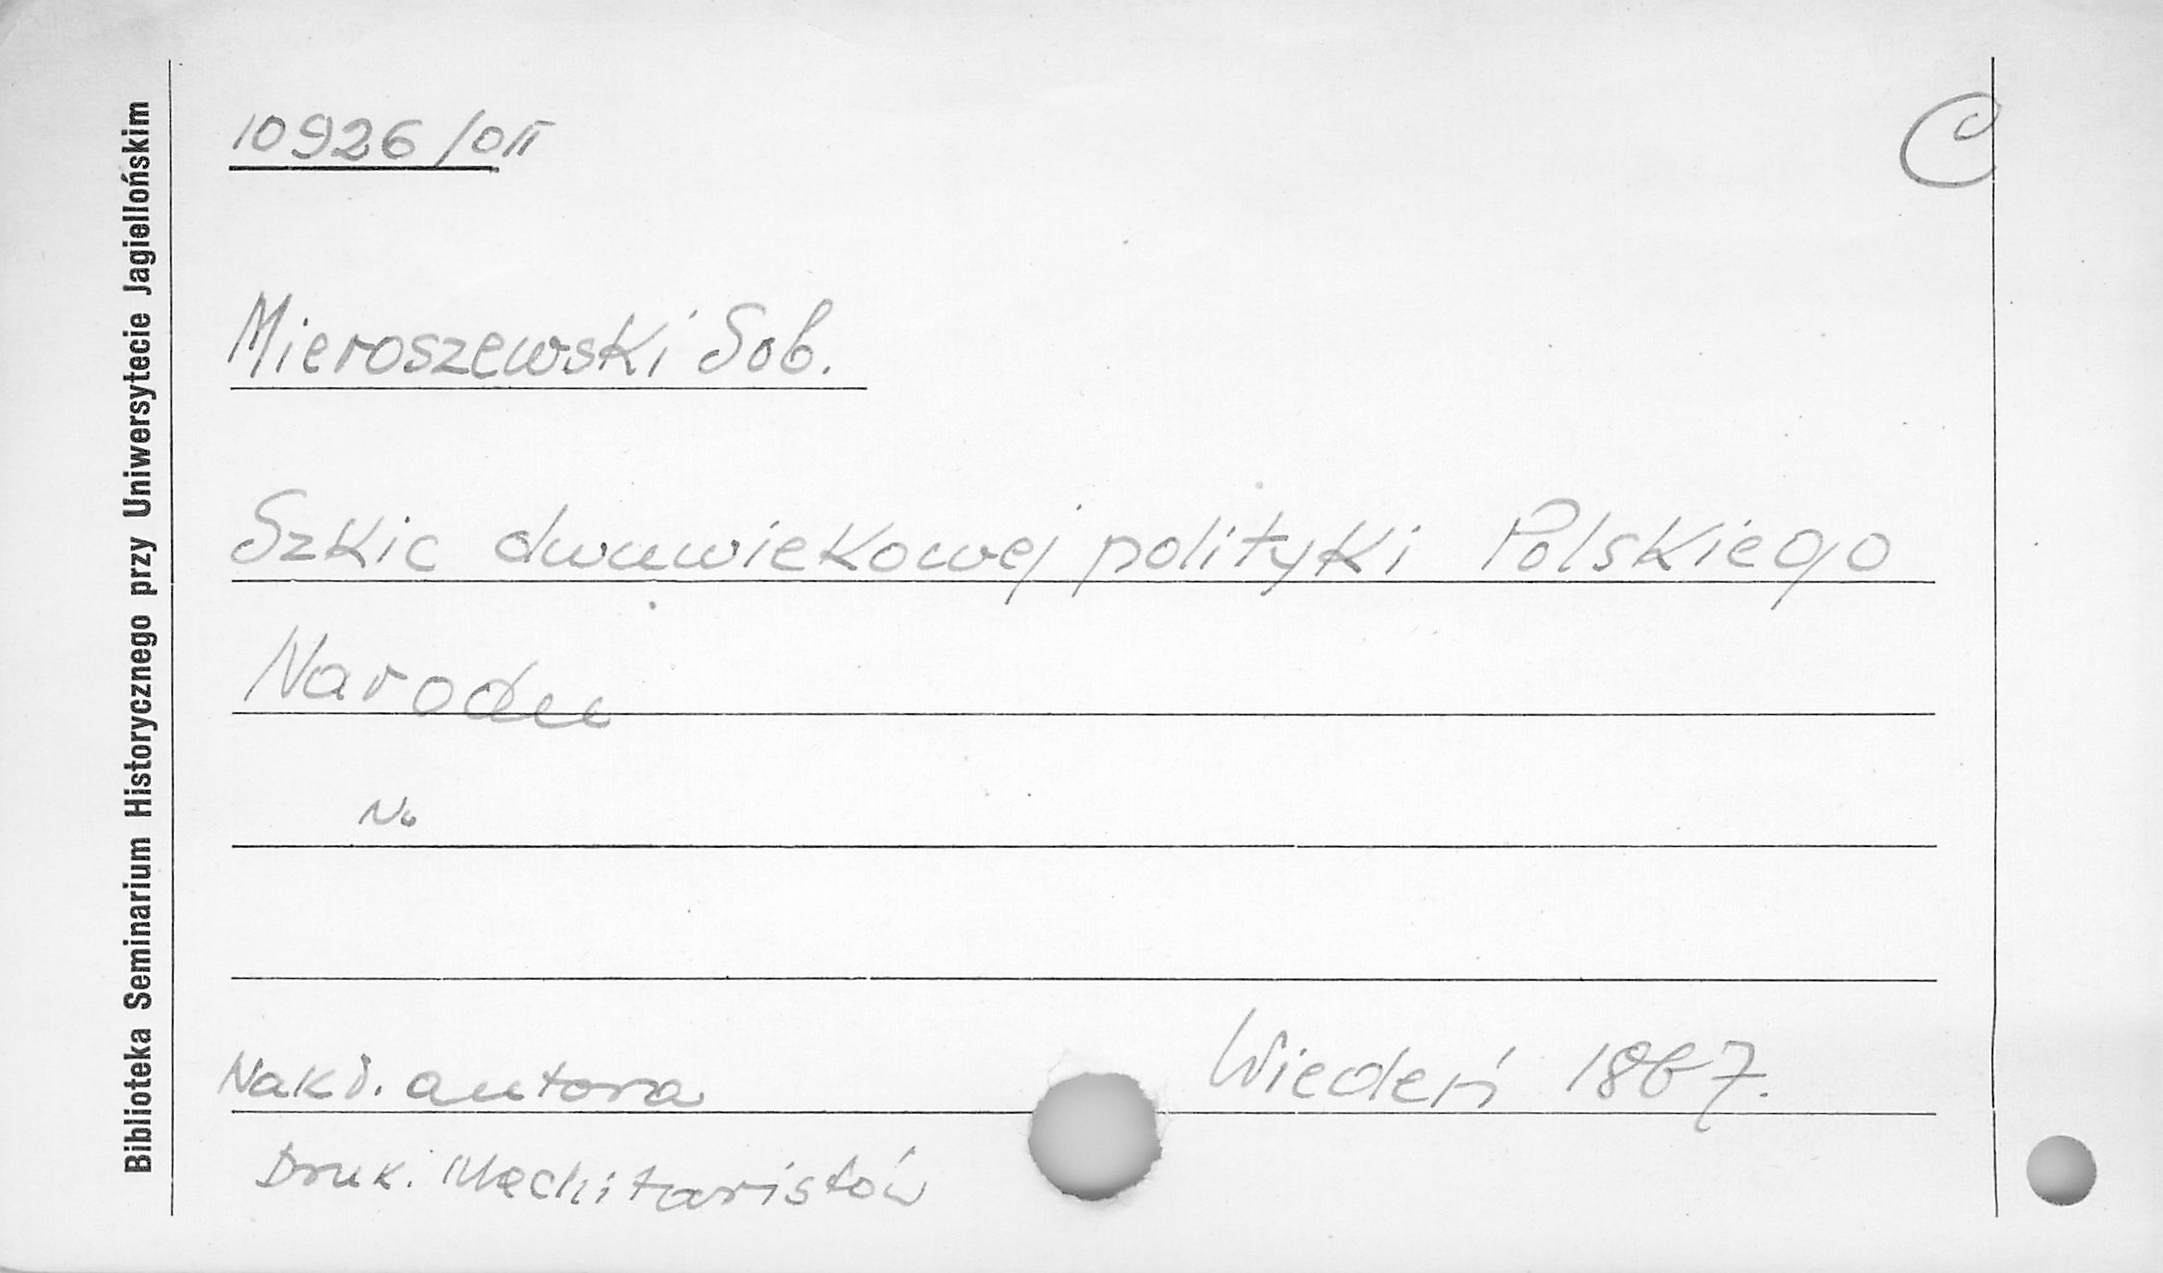 10926/OII
C
Mieroszewski Sob.
Szkic dwuwiekowej polityki Polskiego
Narodu
No
Nakł. autora
Wiedeń 1867.
Druk. Mechitaristów
Biblioteka Seminarium Historycznego przy Uniwersytecie Jagiellońskim